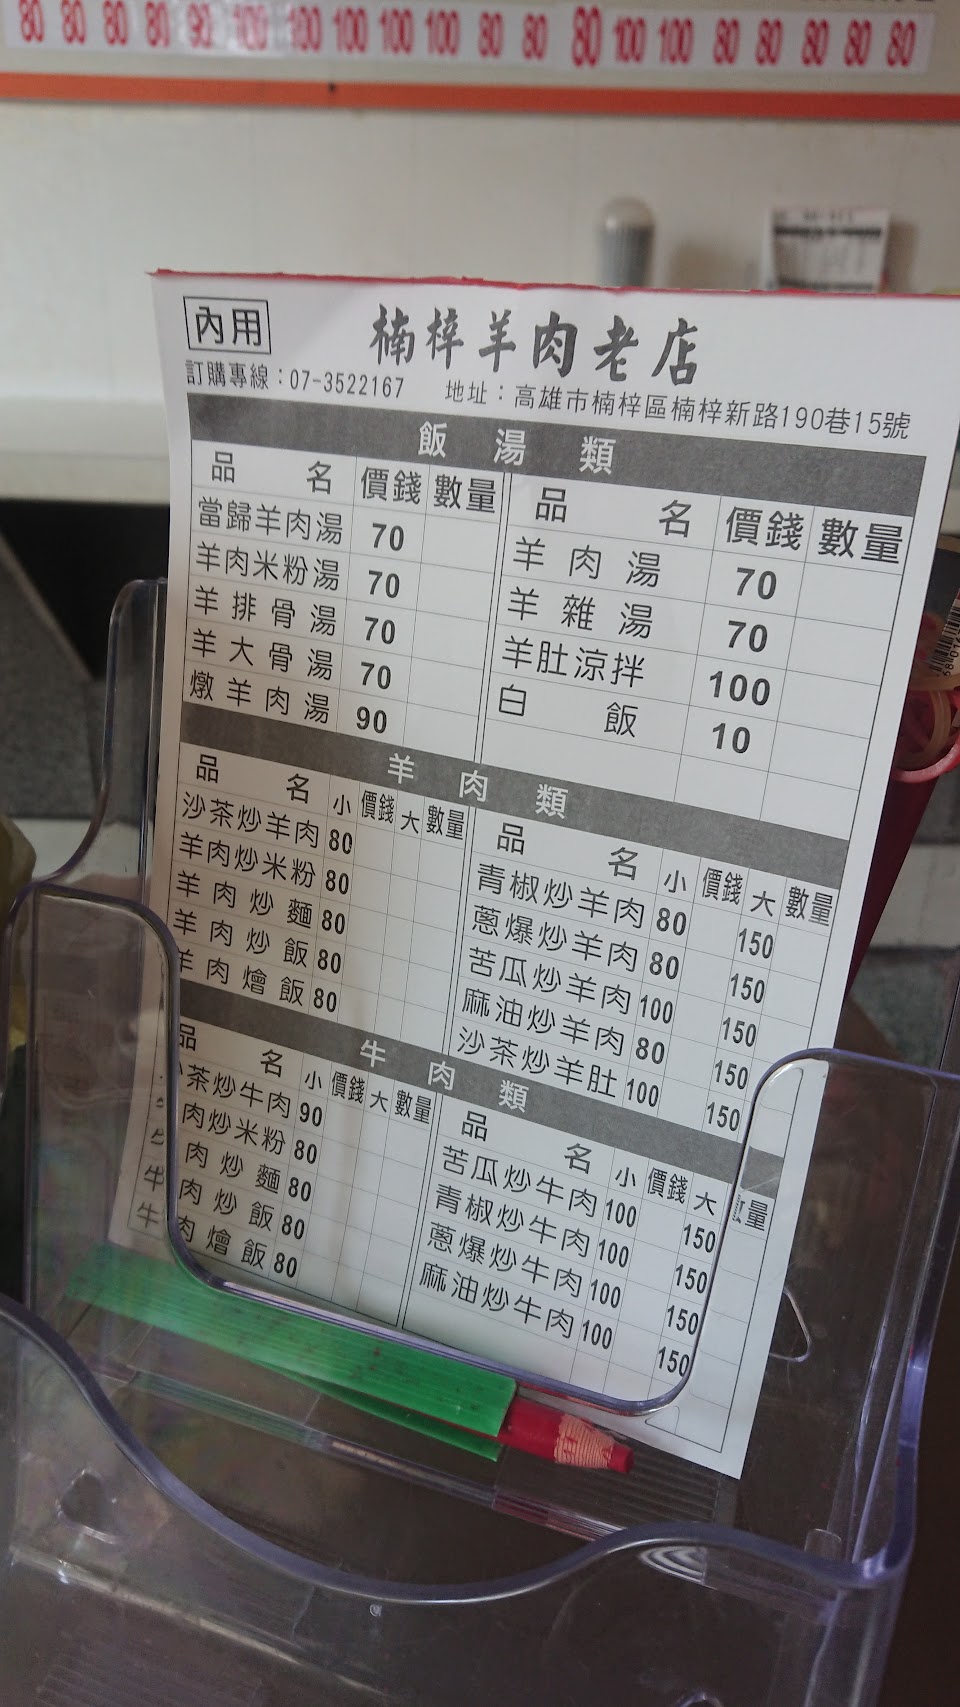 80 80 80 80 90 100 100 100 100 100 80 80 80 100 100 80 80 80 80 80
內用
楠梓羊肉老店
訂購專線：07-3522167 地址：高雄市楠梓區楠梓新路190巷15號
飯湯類
品名 價錢 數量
當歸羊肉湯 70
羊肉米粉湯 70
羊排骨湯 70
羊大骨湯 70
燉羊肉湯 90
品名 價錢 數量
羊肉湯 70
羊雜湯 70
羊肚涼拌 100
白飯 10
羊肉類
品名 小 價錢 大 數量
沙茶炒羊肉 80
羊肉炒米粉 80
羊肉炒麵 80
羊肉炒飯 80
羊肉燴飯 80
品名 小 價錢 大 數量
青椒炒羊肉 80 150
蔥爆炒羊肉 80 150
苦瓜炒羊肉 100 150
麻油炒羊肉 80 150
沙茶炒羊肚 100 150
牛肉類
品名 小 價錢 大 數量
茶炒牛肉 90
肉炒米粉 80
肉炒麵 80
牛肉炒飯 80
牛肉燴飯 80
品名 小 價錢 大 數量
苦瓜炒牛肉 100 150
青椒炒牛肉 100 150
蔥爆炒牛肉 100 150
麻油炒牛肉 100 150